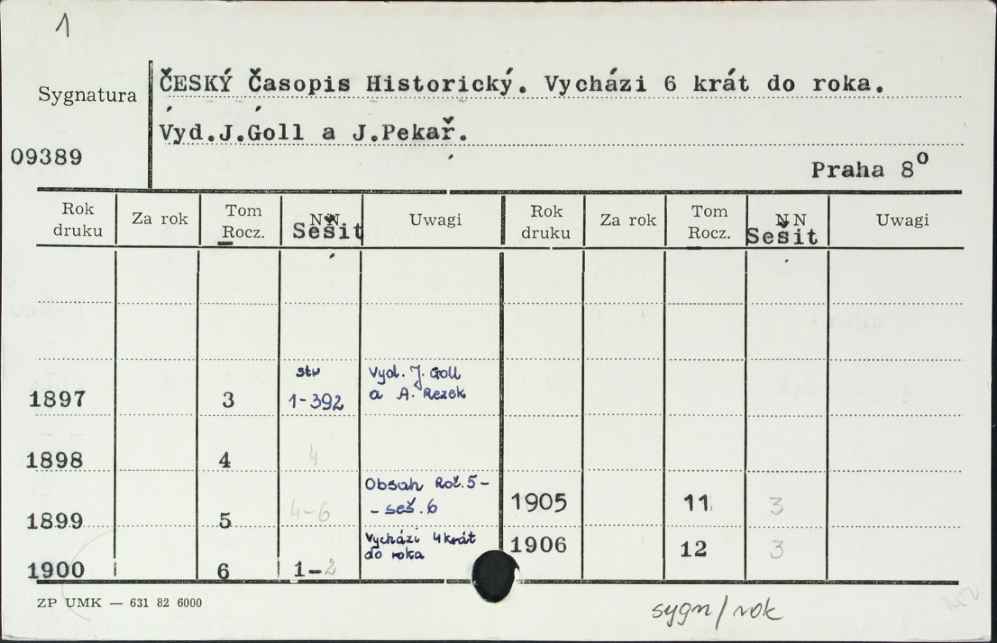 1
Sygnatura
09389
ČESKÝ Časopis Historický. Vycházi 6 krát do roka.
Vyd.J.Goll a J.Pekař.
Praha 8º
Rok druku Za rok Tom Rocz. NN Sešit Uwagi Rok druku Za rok Tom Rocz. NN Sešit Uwagi
1897 3 str 1-392 Vyd. J. Goll a A. Rezek
1898 4 4
1899 5 4-6 Obsah Roč. 5 - - seš. 6 1905 11 3
1900 6 1-2 Vycházi 4 krát do roka 1906 12 3
ZP UMK — 631 82 6000
sygn/rok